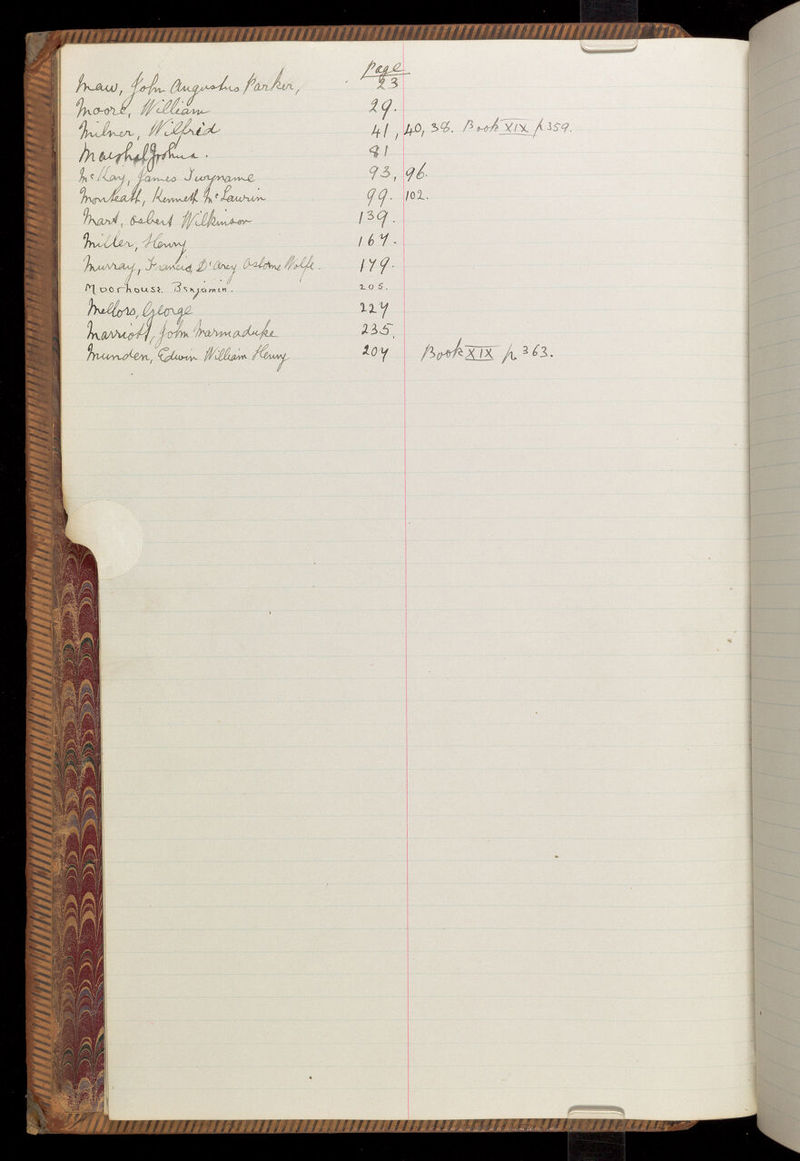 page
Maw, John Augustus Parker, 23
Moore, William 29.
Milner, Wilfrid 41, 40, 38. Book XIX p 359.
Marshal Joshua. 81
McKay, James Twyname 93, 96.
Monteath, Kenneth McLaurin 99. 102.
Mart, Osbert Wilkinson 139.
Miller, Henry 167.
Murray, Francis, D'Arcy Osborne Wolfe. 179.
Moorhouse. Benjamin. 205.
Mellors, George 227
Marriott, John Marmaduke 235.
Munden, Edwin William Henry 207 Book XIX p. 363.